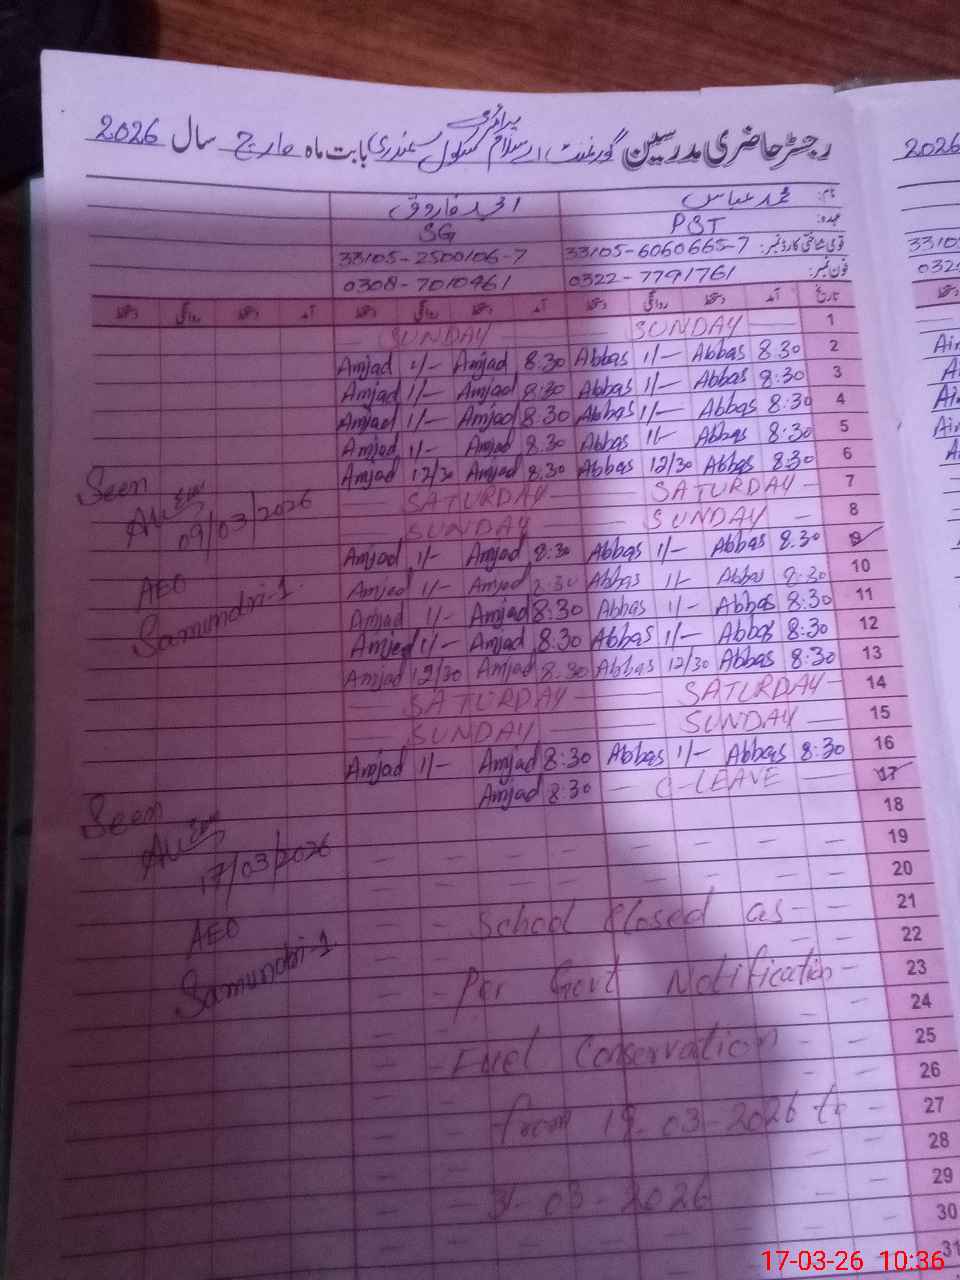 رجسٹر حاضری مدرسین گورنمنٹ اسلام پرائمری سکول سمندری بابت ماہ مارچ سال 2026
2026
نام: محمد عباس امجد فاروق
عہدہ: PST SG
قومی شناختی کارڈ نمبر: 33105-6060665-7 33105-2500106-7
فون نمبر: 0322-7791761 0308-7010961
تاریخ آمد دستخط روانگی دستخط آمد دستخط روانگی دستخط آمد دستخط روانگی دستخط
SUNDAY SUNDAY 1
Amjad 1/- Amjad 8.30 Abbas 1/- Abbas 8.30 2
Amjad 1/- Amjad 8:30 Abbas 1/- Abbas 8:30 3
Amjad 1/- Amjad 8.30 Abbas 1/- Abbas 8:30 4
Amjad 1/- Amjad 8.30 Abbas 1/- Abbas 8:30 5
Amjad 12/30 Amjad 8.30 Abbas 12/30 Abbas 8:30 6
SATURDAY SATURDAY 7
SUNDAY SUNDAY 8
Amjad 1/- Amjad 8:30 Abbas 1/- Abbas 8.30 9
Amjad 1/- Amjad 8:30 Abbas 1/- Abbas 8:30 10
Amjad 1/- Amjad 8:30 Abbas 1/- Abbas 8:30 11
Amjad 1/- Amjad 8:30 Abbas 1/- Abbas 8:30 12
Amjad 12/30 Amjad 8.30 Abbas 12/30 Abbas 8:30 13
SATURDAY SATURDAY 14
SUNDAY SUNDAY 15
Amjad 1/- Amjad 8:30 Abbas 1/- Abbas 8:30 16
Amjad 8:30 C-LEAVE 17
18
19
20
21
22
23
24
25
26
27
28
29
30
31
Seen
09/03/2026
AEO
Samundri-1
Seen
17/03/2026
AEO
Samundri-1
School Closed as
Per Govt Notification
Fuel Conservation
from 18-03-2026 to
31-03-2026
17-03-26 10:36